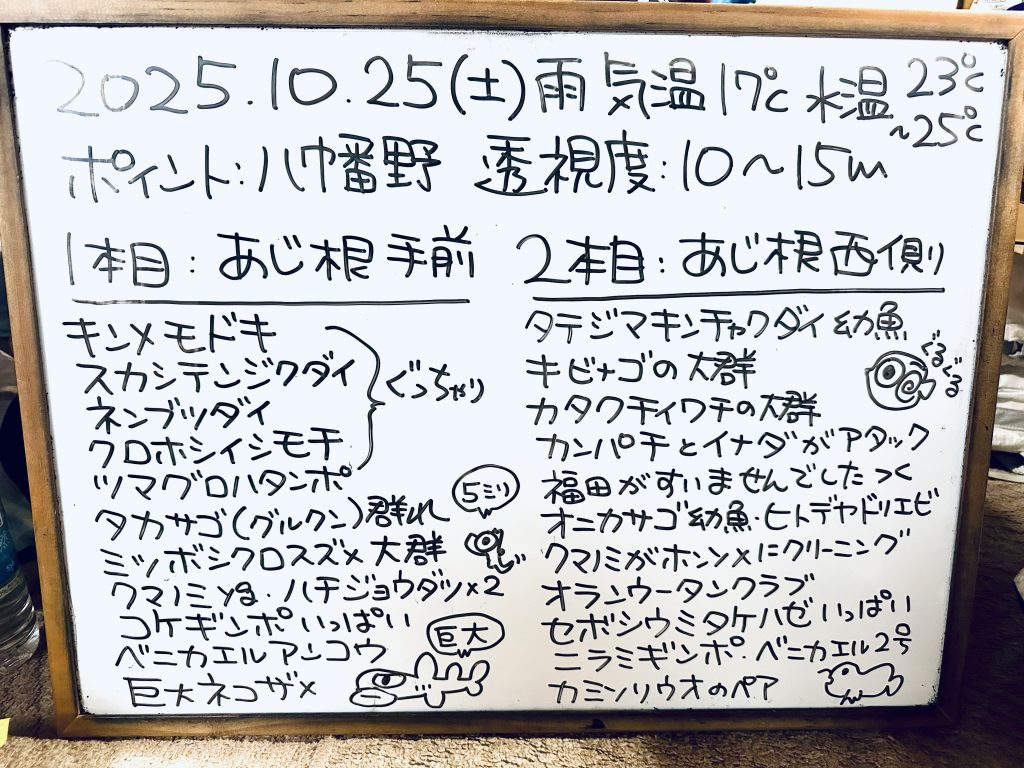 2025.10.25(土)雨 気温17℃ 水温23℃~25℃
ポイント:八幡野 透視度:10~15m
1本目:あじ根 手前
キンメモドキ
スカシテンジクダイ
ネンブツダイ
クロホシイシモチ
ぐっちゃり
ツマグロハタンポ
タカサゴ(グルクン)群れ
5ミリ
ミツボシクロスズメ大群
クマノミyg.ハチジョウダツ×2
コケギンポいっぱい
巨大
ベニカエルアンコウ
巨大ネコザメ
2本目:あじ根西側
タテジマキンチャクダイ幼魚
キビナゴの大群
ぐるぐる
カタクチイワチの大群
カンパチとイナダがアタック
福田がすいませんでしたっく
オニカサゴ幼魚・ヒトデヤドリエビ
クマノミがホンソメにクリーニング
オランウータンクラブ
セボシウミタケハゼいっぱい
ニラミギンポ・ベニカエル2号
カミソリウオのペア